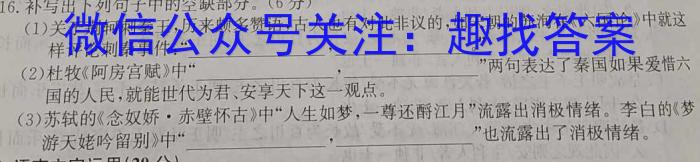 16.补写出下列句子中的空缺部分。(6分)
(1)关 刺秦王,历来颇多赞 古人也有对 非议的, 中就这
样 刺秦 件
微信公众号关注：趣找答案
(2)杜牧《阿房宫赋》中“ , ”两句表达了秦国如果爱惜六
国的人民,就能世代为君、安享天下这一观点。
(3)苏轼的《念奴娇·赤壁怀古》中“人生如梦,一尊还酹江月”流露出消极情绪。李白的《梦
游天姥吟留别》中“ , ”也流露出了消极情绪。